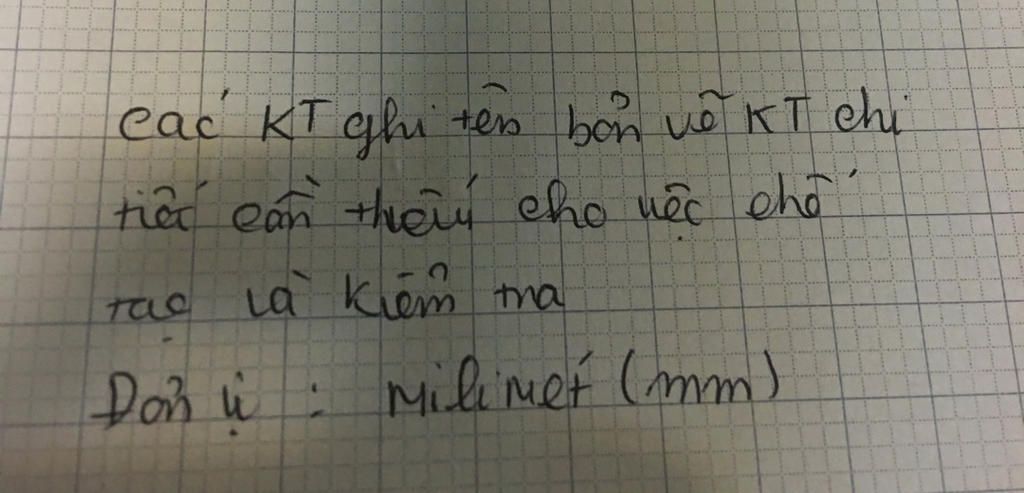 các KT ghi tên bản vẽ KT chi
tiết cần thiết cho việc chế
tạo và kiểm tra
Đơn vị : Milimet (mm)